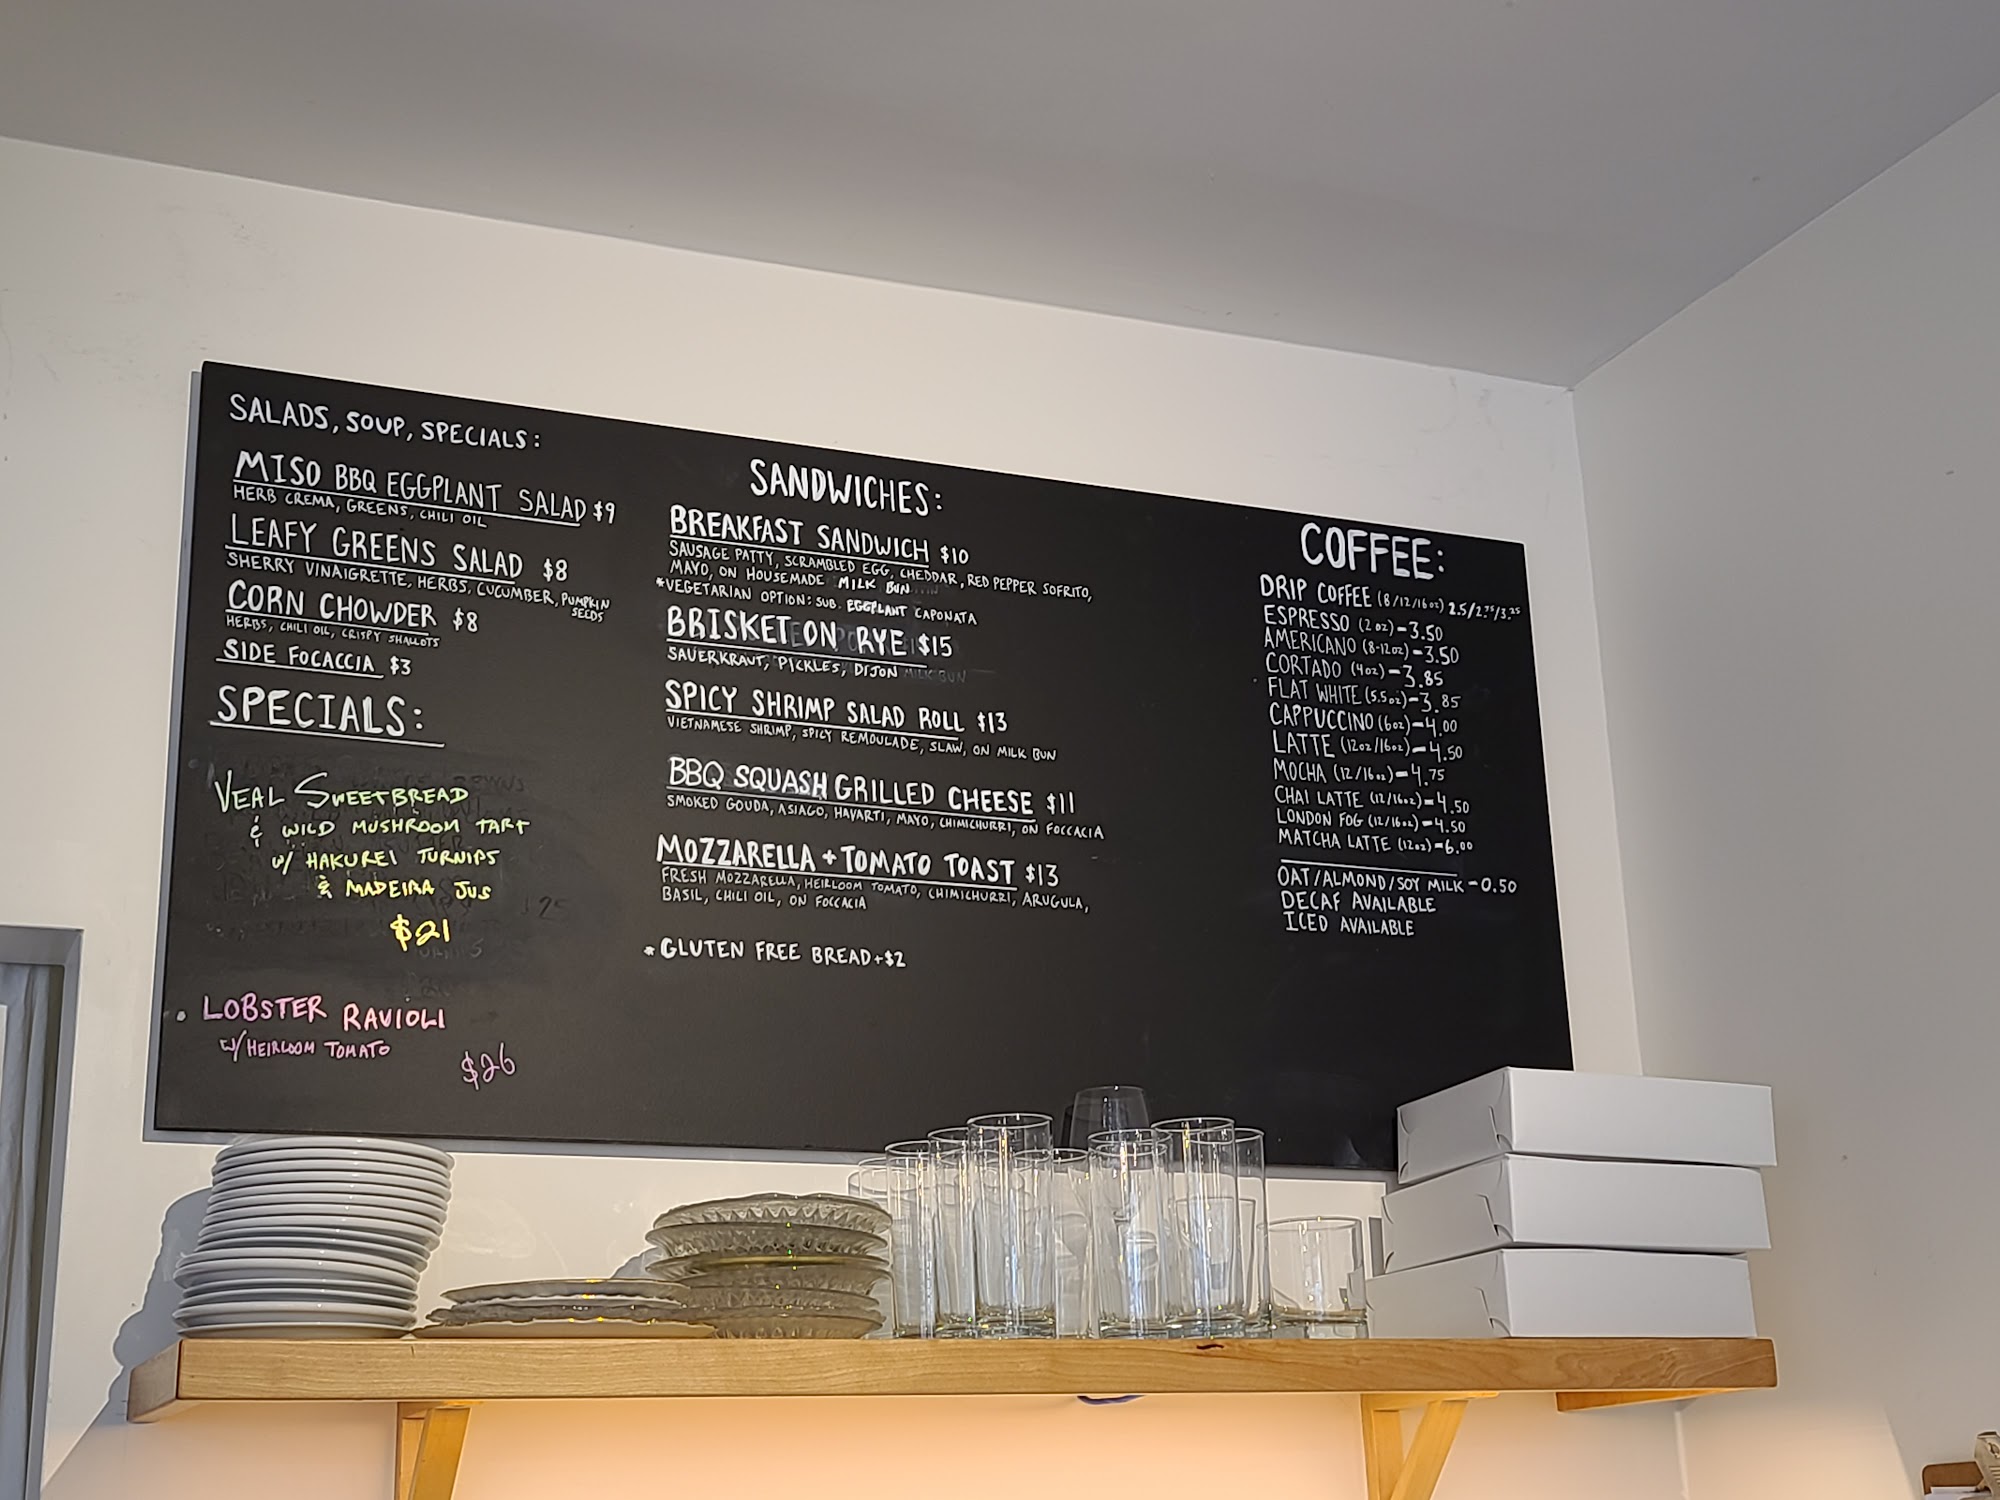 SALADS, SOUP, SPECIALS:
MISO BBQ EGGPLANT SALAD $9
HERB CREMA, GREENS, CHILI OIL
LEAFY GREENS SALAD $8
SHERRY VINAIGRETTE, HERBS, CUCUMBER, PUMPKIN
SEEDS
CORN CHOWDER $8
HERBS, CHILI OIL, CRISPY SHALLOTS
SIDE FOCACCIA $3
SPECIALS:
VEAL SWEETBREAD
& WILD MUSHROOM TART
W/ HAKUREI TURNIPS
& MADEIRA JUS
$21
• LOBSTER RAVIOLI
W/ HEIRLOOM TOMATO
$26
SANDWICHES:
BREAKFAST SANDWICH $10
SAUSAGE PATTY, SCRAMBLED EGG, CHEDDAR, RED PEPPER SOFRITO,
MAYO, ON HOUSEMADE MILK BUN
*VEGETARIAN OPTION: SUB. EGGPLANT CAPONATA
BRISKET ON RYE $15
SAUERKRAUT, PICKLES, DIJON
SPICY SHRIMP SALAD ROLL $13
VIETNAMESE SHRIMP, SPICY REMOULADE, SLAW, ON MILK BUN
BBQ SQUASH GRILLED CHEESE $11
SMOKED GOUDA, ASIAGO, HAVARTI, MAYO, CHIMICHURRI, ON FOCCACIA
MOZZARELLA + TOMATO TOAST $13
FRESH MOZZARELLA, HEIRLOOM TOMATO, CHIMICHURRI, ARUGULA,
BASIL, CHILI OIL, ON FOCCACIA
* GLUTEN FREE BREAD +$2
COFFEE:
DRIP COFFEE (8/12/16oz) 2.5/2.75/3.25
ESPRESSO (2oz) - 3.50
AMERICANO (8-12oz) - 3.50
CORTADO (4oz) - 3.85
FLAT WHITE (5.5oz) - 3.85
CAPPUCCINO (6oz) - 4.00
LATTE (12oz/16oz) - 4.50
MOCHA (12/16oz) - 4.75
CHAI LATTE (12/16oz) - 4.50
LONDON FOG (12/16oz) - 4.50
MATCHA LATTE (12oz) - 6.00
OAT/ALMOND/SOY MILK - 0.50
DECAF AVAILABLE
ICED AVAILABLE